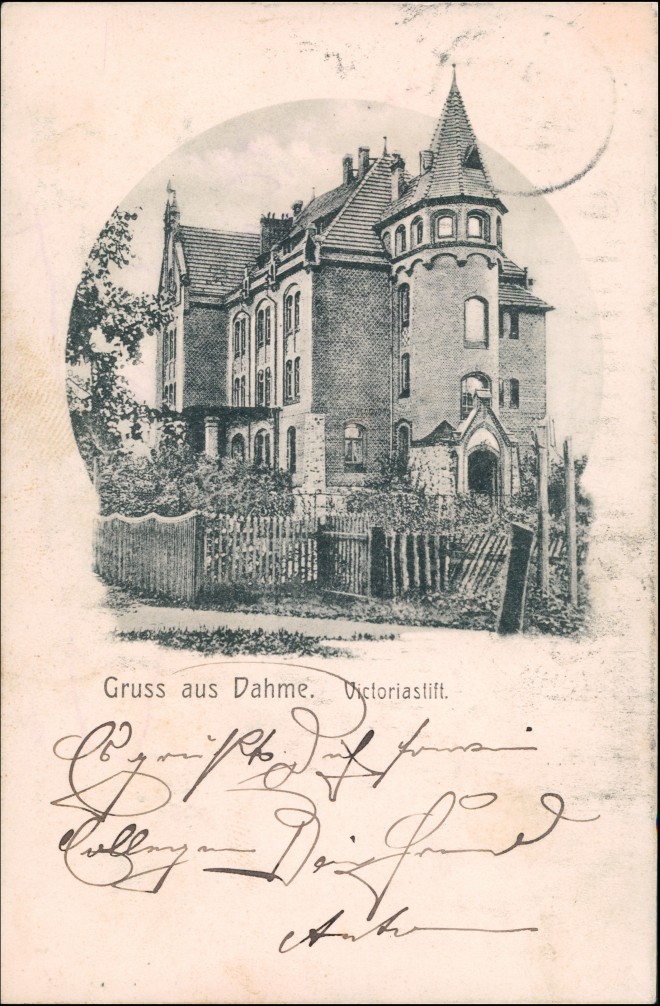 Gruss aus Dahme. Victoriastift.
Es grüßt Dich sowie
Collegen Dein Freund
Anton